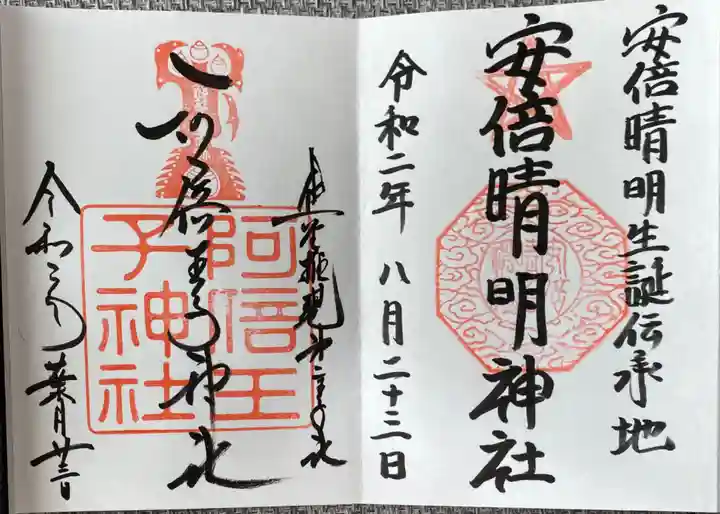 安倍晴明生誕伝承地
安倍晴明神社
令和二年 八月二十三日
阿倍王子神社
阿倍王
子神社
令和二年 葉月廿三日